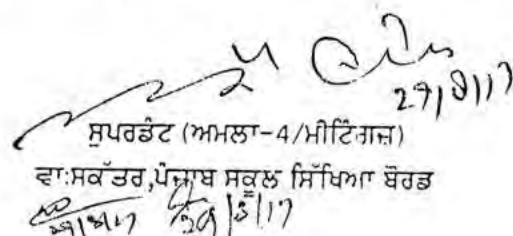 29/8/17
ਸੁਪਰਡੰਟ (ਅਮਲਾ-4/ਮੀਟਿੰਗਜ਼)
ਵਾ:ਸਕੱਤਰ,ਪੰਜਾਬ ਸਕੂਲ ਸਿੱਖਿਆ ਬੋਰਡ
29/8/17 29/8/17